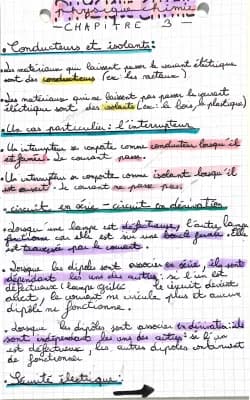 physique chimie
- CHAPITRE 3 -
• Conducteurs et isolants :
• Les matériaux qui laissent passer le courant éléctrique
sont des conducteurs (ex: les métaux)
• Des matériaux qui ne laissent pas passer le courant
éléctrique sont des isolants (ex: le bois, le plastique)
• Un cas particulier : l'interrupteur
• Un interrupteur se comporte comme conducteur lorsqu'il
est fermé. Le courant passe.
• Un interrupteur se comporte comme isolant lorsqu'il
est ouvert. Le courant ne passe pas.
• circuit en série - circuit en dérivation
• Lorsque une lampe est défectueuse, l'autre lampe
fonctionne car elle est sur une boucle fermée. Elle
est traversée par le courant.
• Lorsque les dipôles sont associés en série, ils sont
dépendant les uns des autres : si l'un est
défectueux (lampe grillée) le circuit devient
ouvert, le courant ne circule plus et aucun
dipôle ne fonctionne.
• Lorsque les dipôles sont associés en dérivation ils
sont indépendant les uns des autres : si l'un
est défectueux, les autres dipôles continuent
de fonctionner
• Sécurité éléctrique :